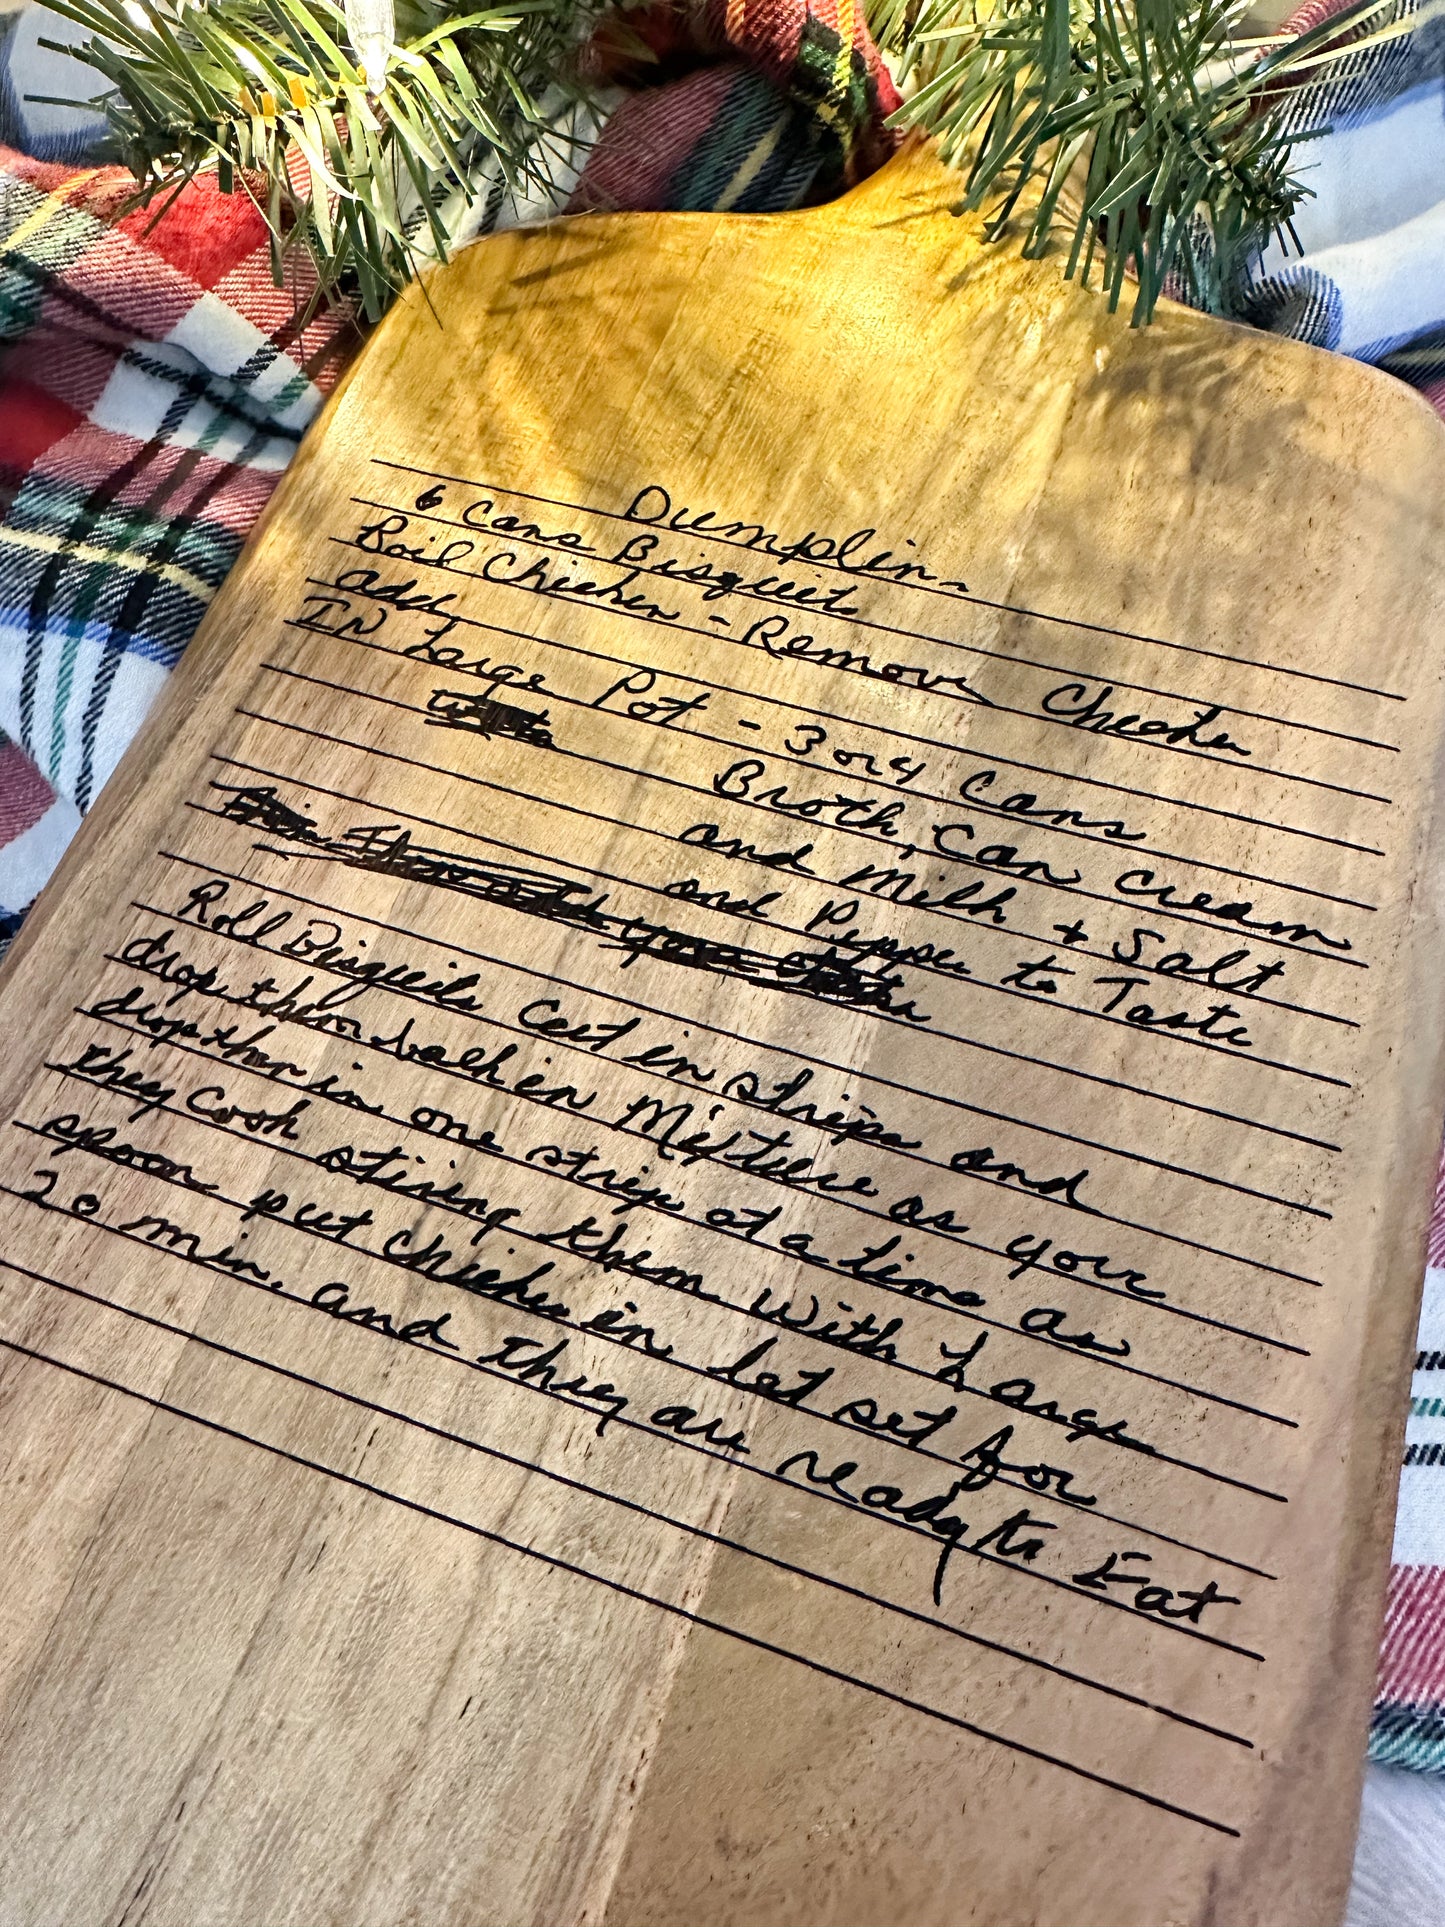 Dumplins
6 Cans Bisquits
Boil Chicken - Remove Chicken
add
In Large Pot - 3 or 4 Cans
Broth, Can Cream
and Milk + Salt
and Pepper to Taste
Roll Bisquits Cut in strips and
drop them back in Mixture as your
drop them in one strip at a time as
they Cook stiring them with Large
spoon. put chicken in let set for
20 min. and they are ready to Eat